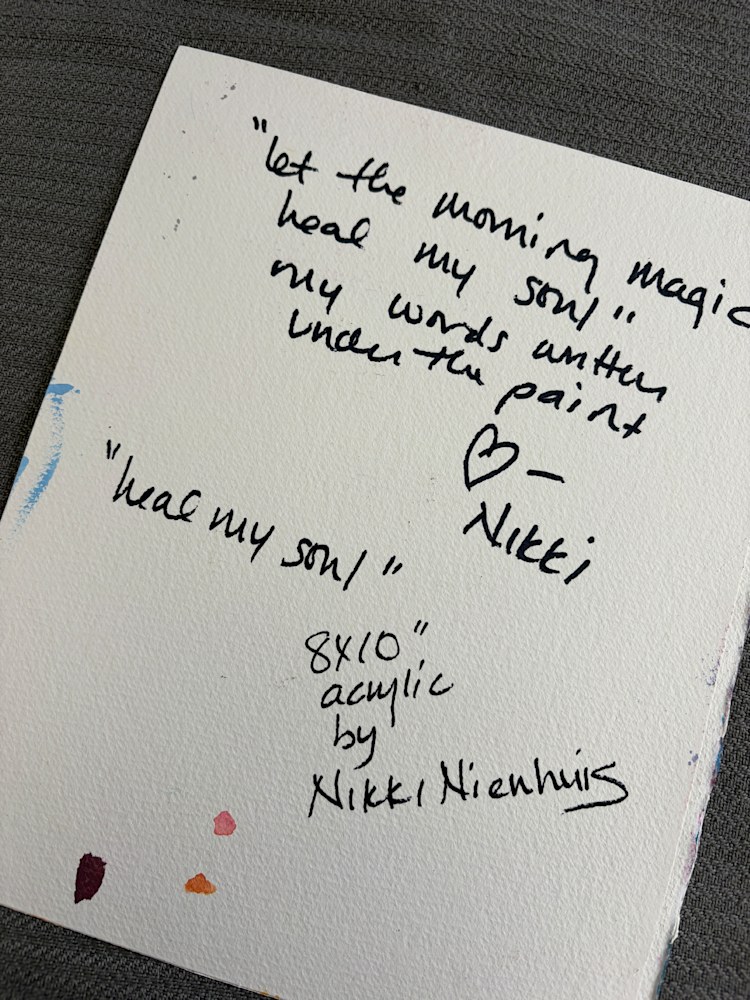 "let the morning magic
heal my soul"
my words written
under the paint
♡ –
Nikki
"heal my soul"
8x10"
acrylic
by
Nikki Nienhuis